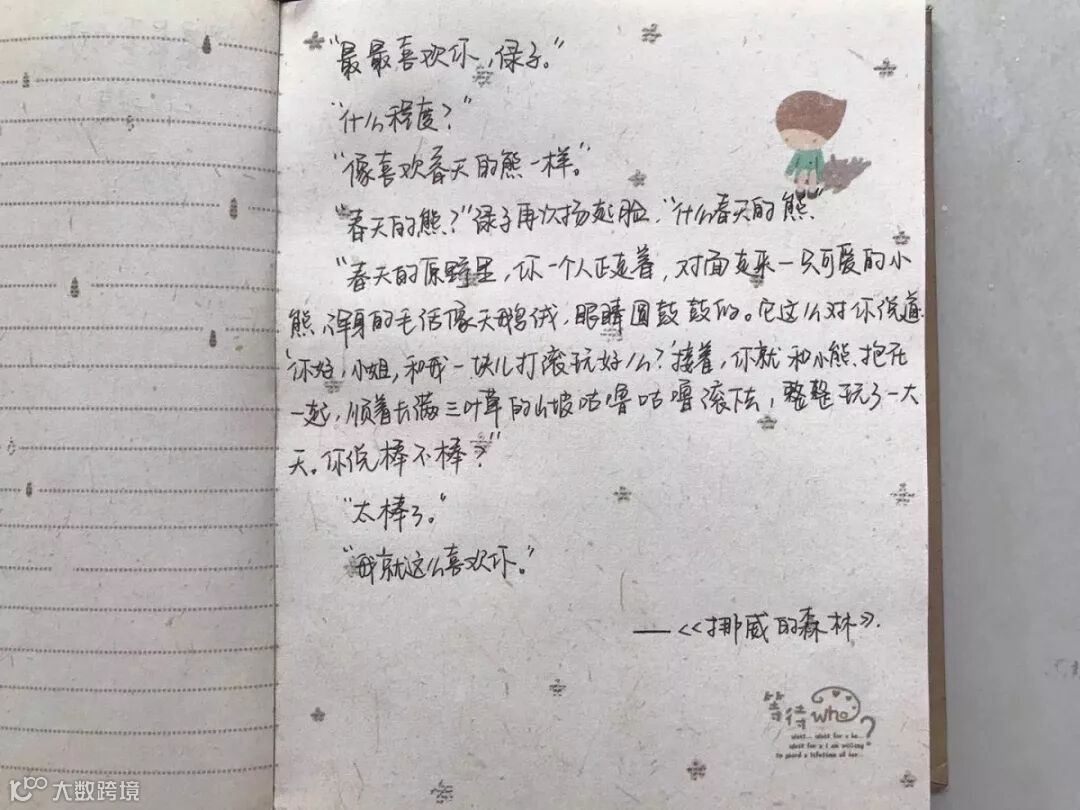 “最最喜欢你,绿子。”
“什么程度?”
“像喜欢春天的熊一样。”
“春天的熊?”绿子再次扬起脸,“什么春天的熊”
“春天的原野里,你一个人正走着,对面走来一只可爱的小
熊,浑身的毛活像天鹅绒,眼睛圆鼓鼓的。它这么对你说道:
‘你好,小姐,和我一块儿打滚玩好么?’接着,你就和小熊抱在
一起,顺着长满三叶草的山坡咕噜咕噜滚下去,整整玩了一大
天。你说棒不棒?”
“太棒了。”
“我就这么喜欢你。”
——《挪威的森林》.
等待who?
wait... wait for a he...
wait for a i am willing
to guard a lifetime of her...
大数跨境